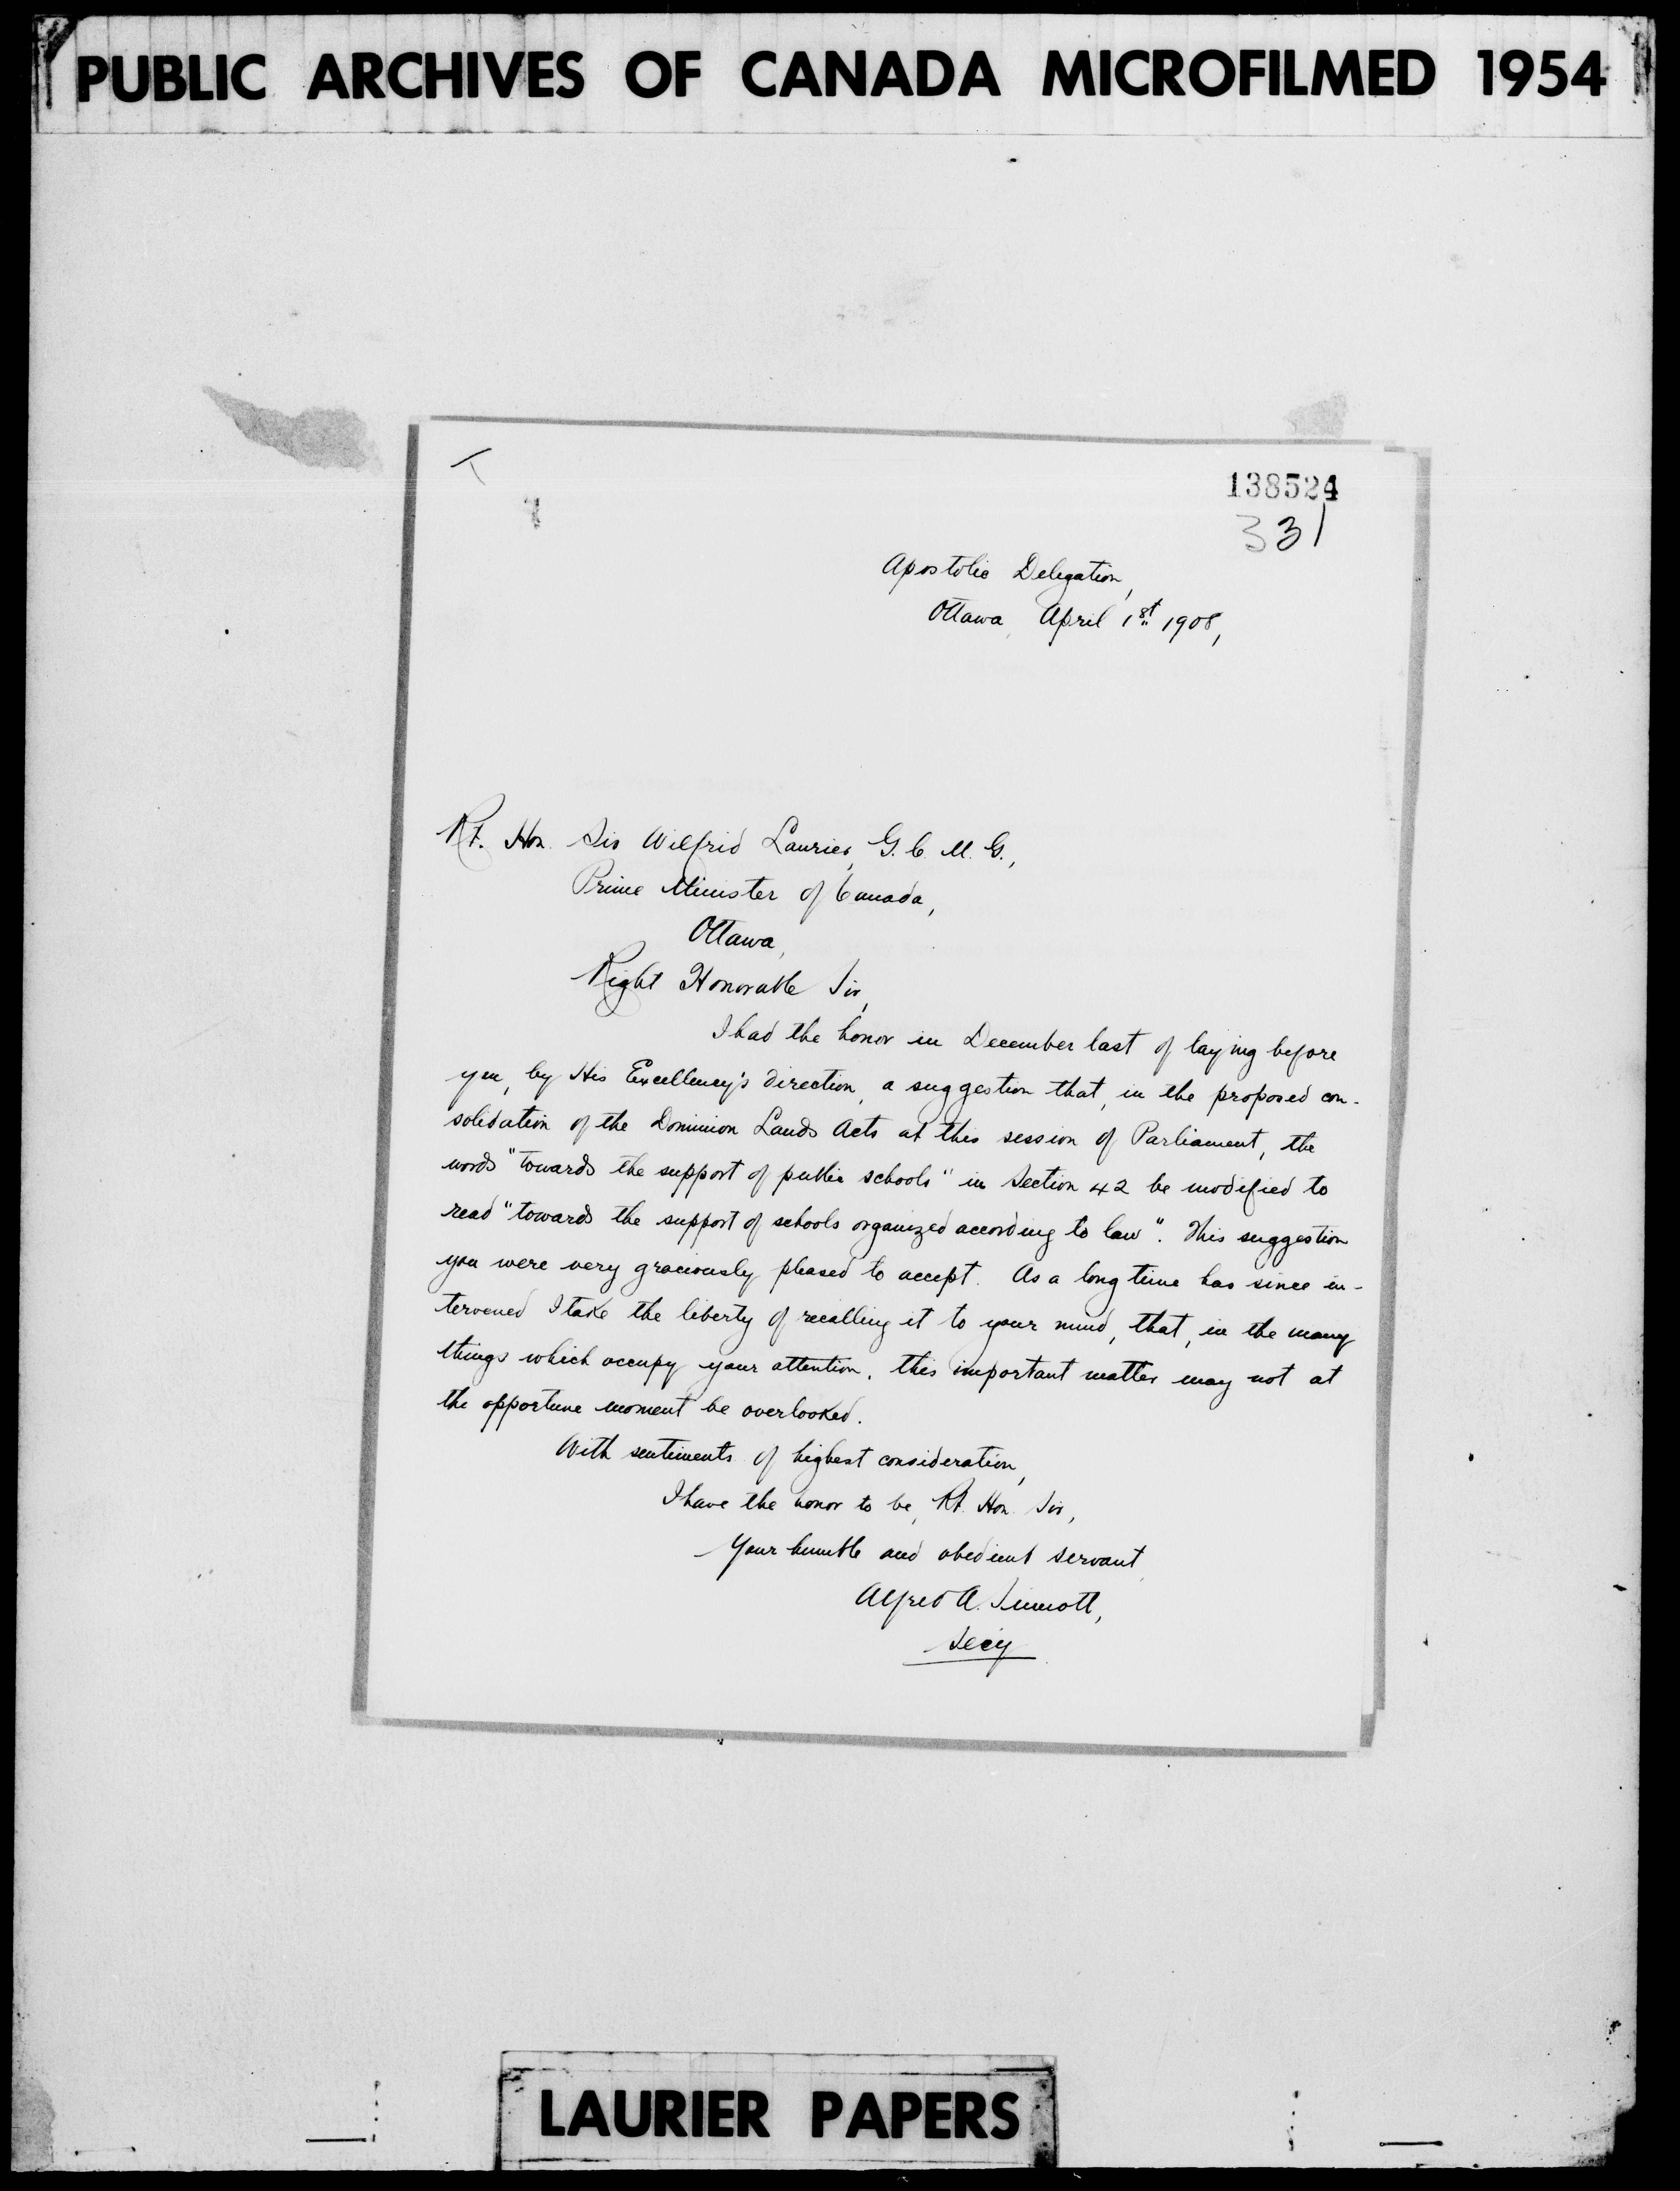 PUBLIC ARCHIVES OF CANADA MICROFILMED 1954
138524
331
Apostolic Delegation,
Ottawa, April 1st 1908,
Rt. Hon. Sir Wilfrid Laurier, G. C. M. G.,
Prime Minister of Canada,
Ottawa,
Right Honorable Sir,
I had the honor in December last of laying before
you, by His Excellency's direction, a suggestion that, in the proposed con-
solidation of the Dominion Lands Acts at this session of Parliament, the
words "towards the support of public schools" in Section 42 be modified to
read "towards the support of schools organized according to law". This suggestion
you were very graciously pleased to accept. As a long time has since in-
tervened I take the liberty of recalling it to your mind, that, in the many
things which occupy your attention, this important matter may not at
the opportune moment be overlooked.
With sentiments of highest consideration,
I have the honor to be, Rt. Hon. Sir,
Your humble and obedient servant,
Alfred A. Sinnott,
Secy
LAURIER PAPERS